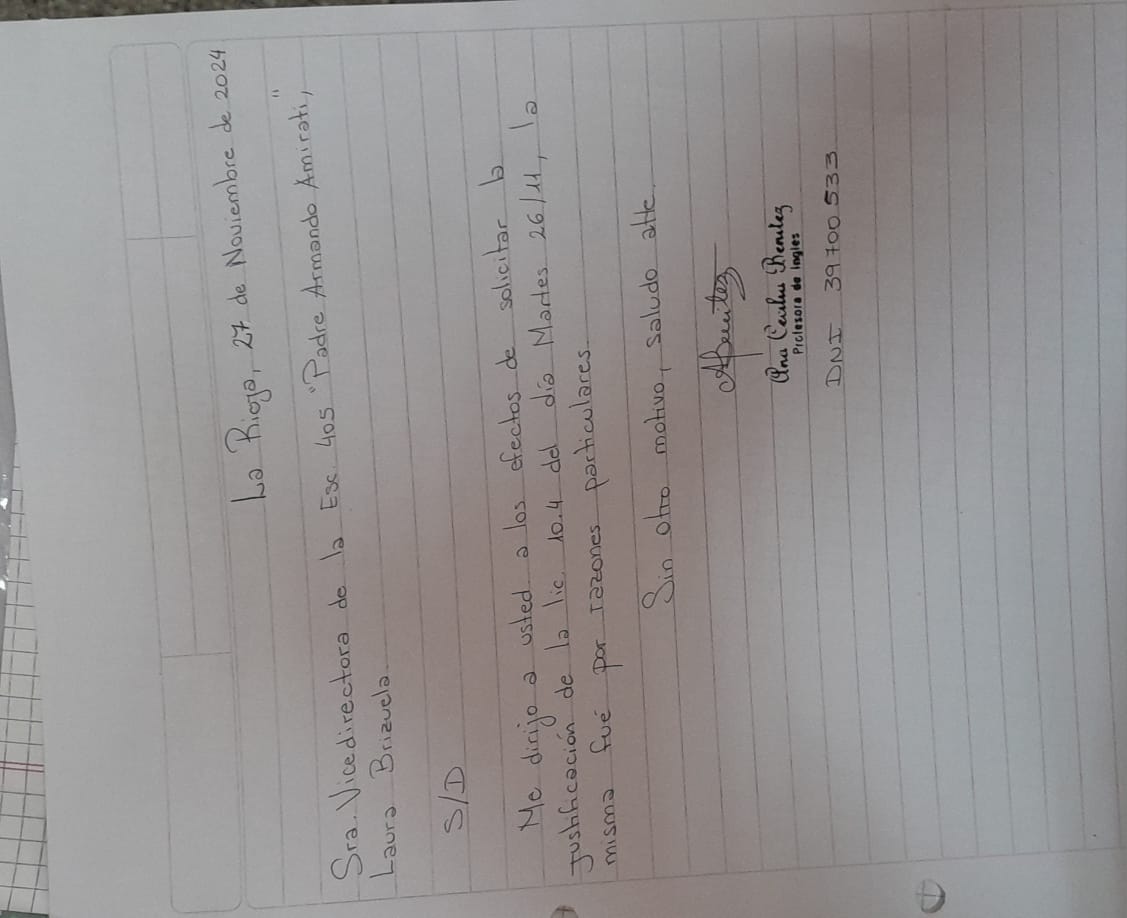 La Rioja, 27 de Noviembre de 2024
Sra. Vicedirectora de la Esc. 405 "Padre Armando Amirati",
Laura Brizuela.
S/D
Me dirijo a usted a los efectos de solicitar la
Justificación de la lic. 10.4 del día Martes 26/11, la
misma fué por razones particulares.
Sin otro motivo, saludo atte.
ABenitez
Ana Benitez
Profesora de Ingles
DNI 39700533